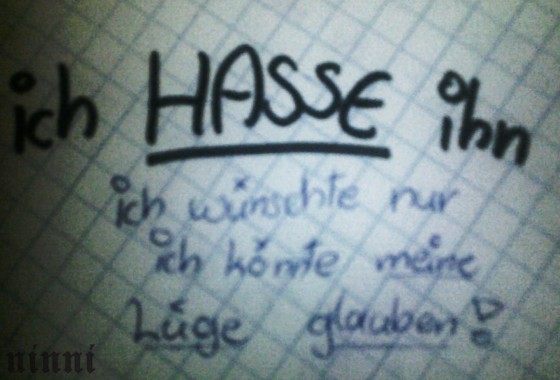 ich HASSE ihn
ich wünschte nur
ich könnte meine
Lüge glauben!
ninni